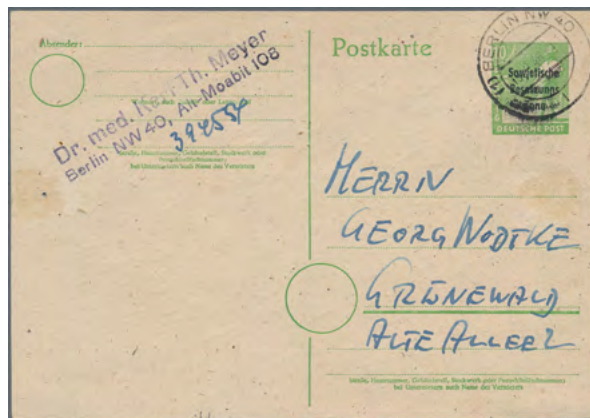 Absender:
Dr. med. Karl Th. Meyer
Berlin NW 40, Alt-Moabit 106
394534
Straße, Hausnummer, Gebäudeteil, Stockwerk oder
Postschließfachnummer;
bei Untermietern auch Name des Vermieters
Postkarte
BERLIN NW 40
Sowjetische
Besatzungs
Zone
DEUTSCHE POST
HERRN
GEORG WODTKE
GRUNEWALD
ALTE ALLEE 2
Straße, Hausnummer, Gebäudeteil, Stockwerk oder Postschließfachnummer;
bei Untermietern auch Name des Vermieters